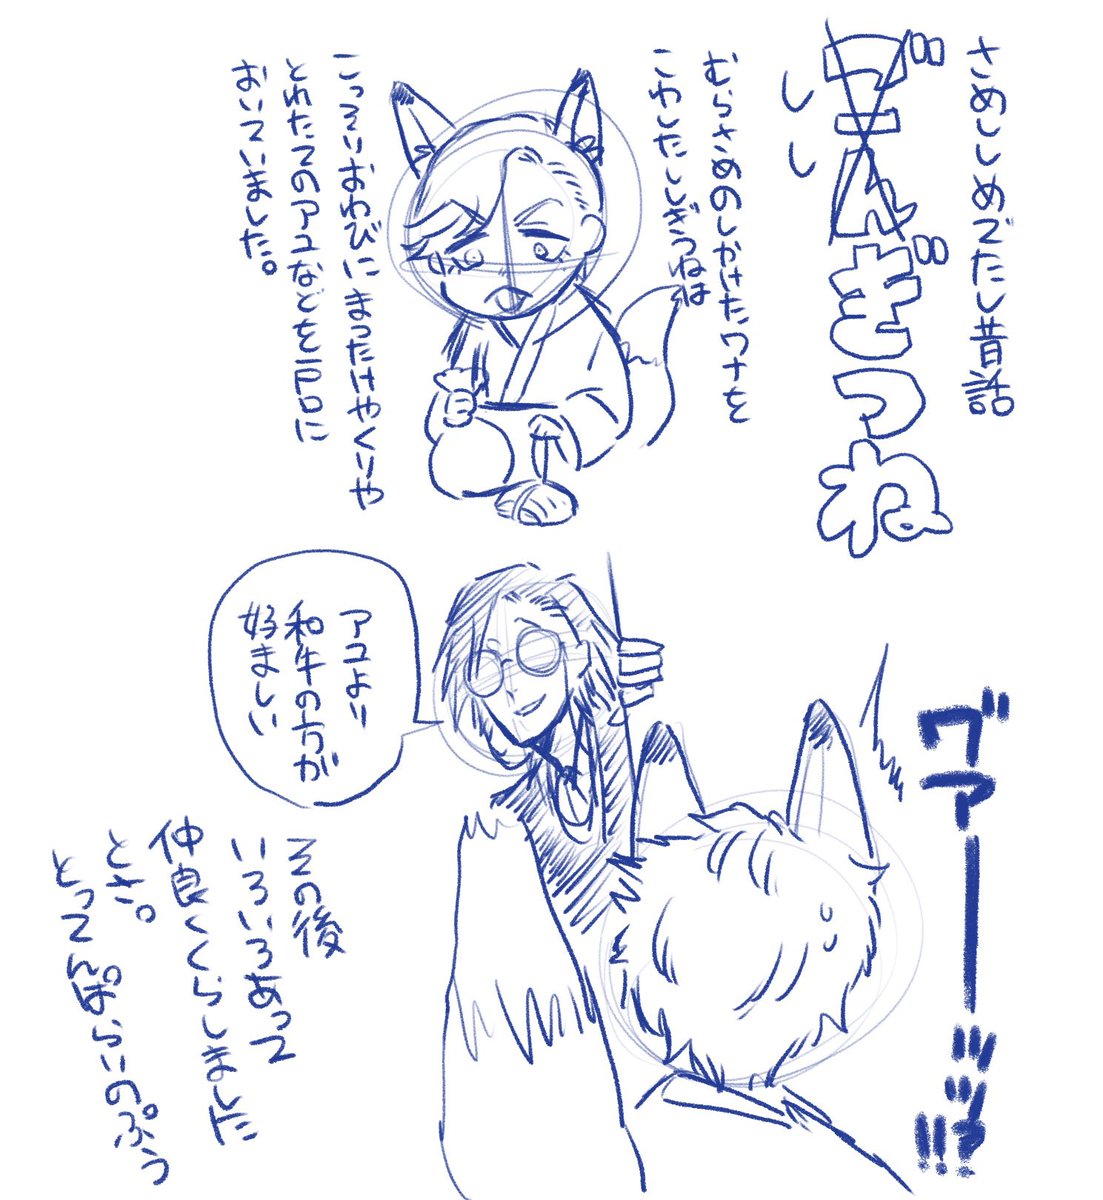 さめしめでたし昔話
ごんぎつね
しし
むらさめのしかけたワナを
こわしたししぎつねは
こっそりおわびにまったけやくりや
とれたてのアユなどを戸口に
おいていました。
ヴァーッッ!!?
アユより
和牛の方が
好ましい
その後
いろいろあって
仲良くくらしました
とさ。
とってんぱらりのぷう